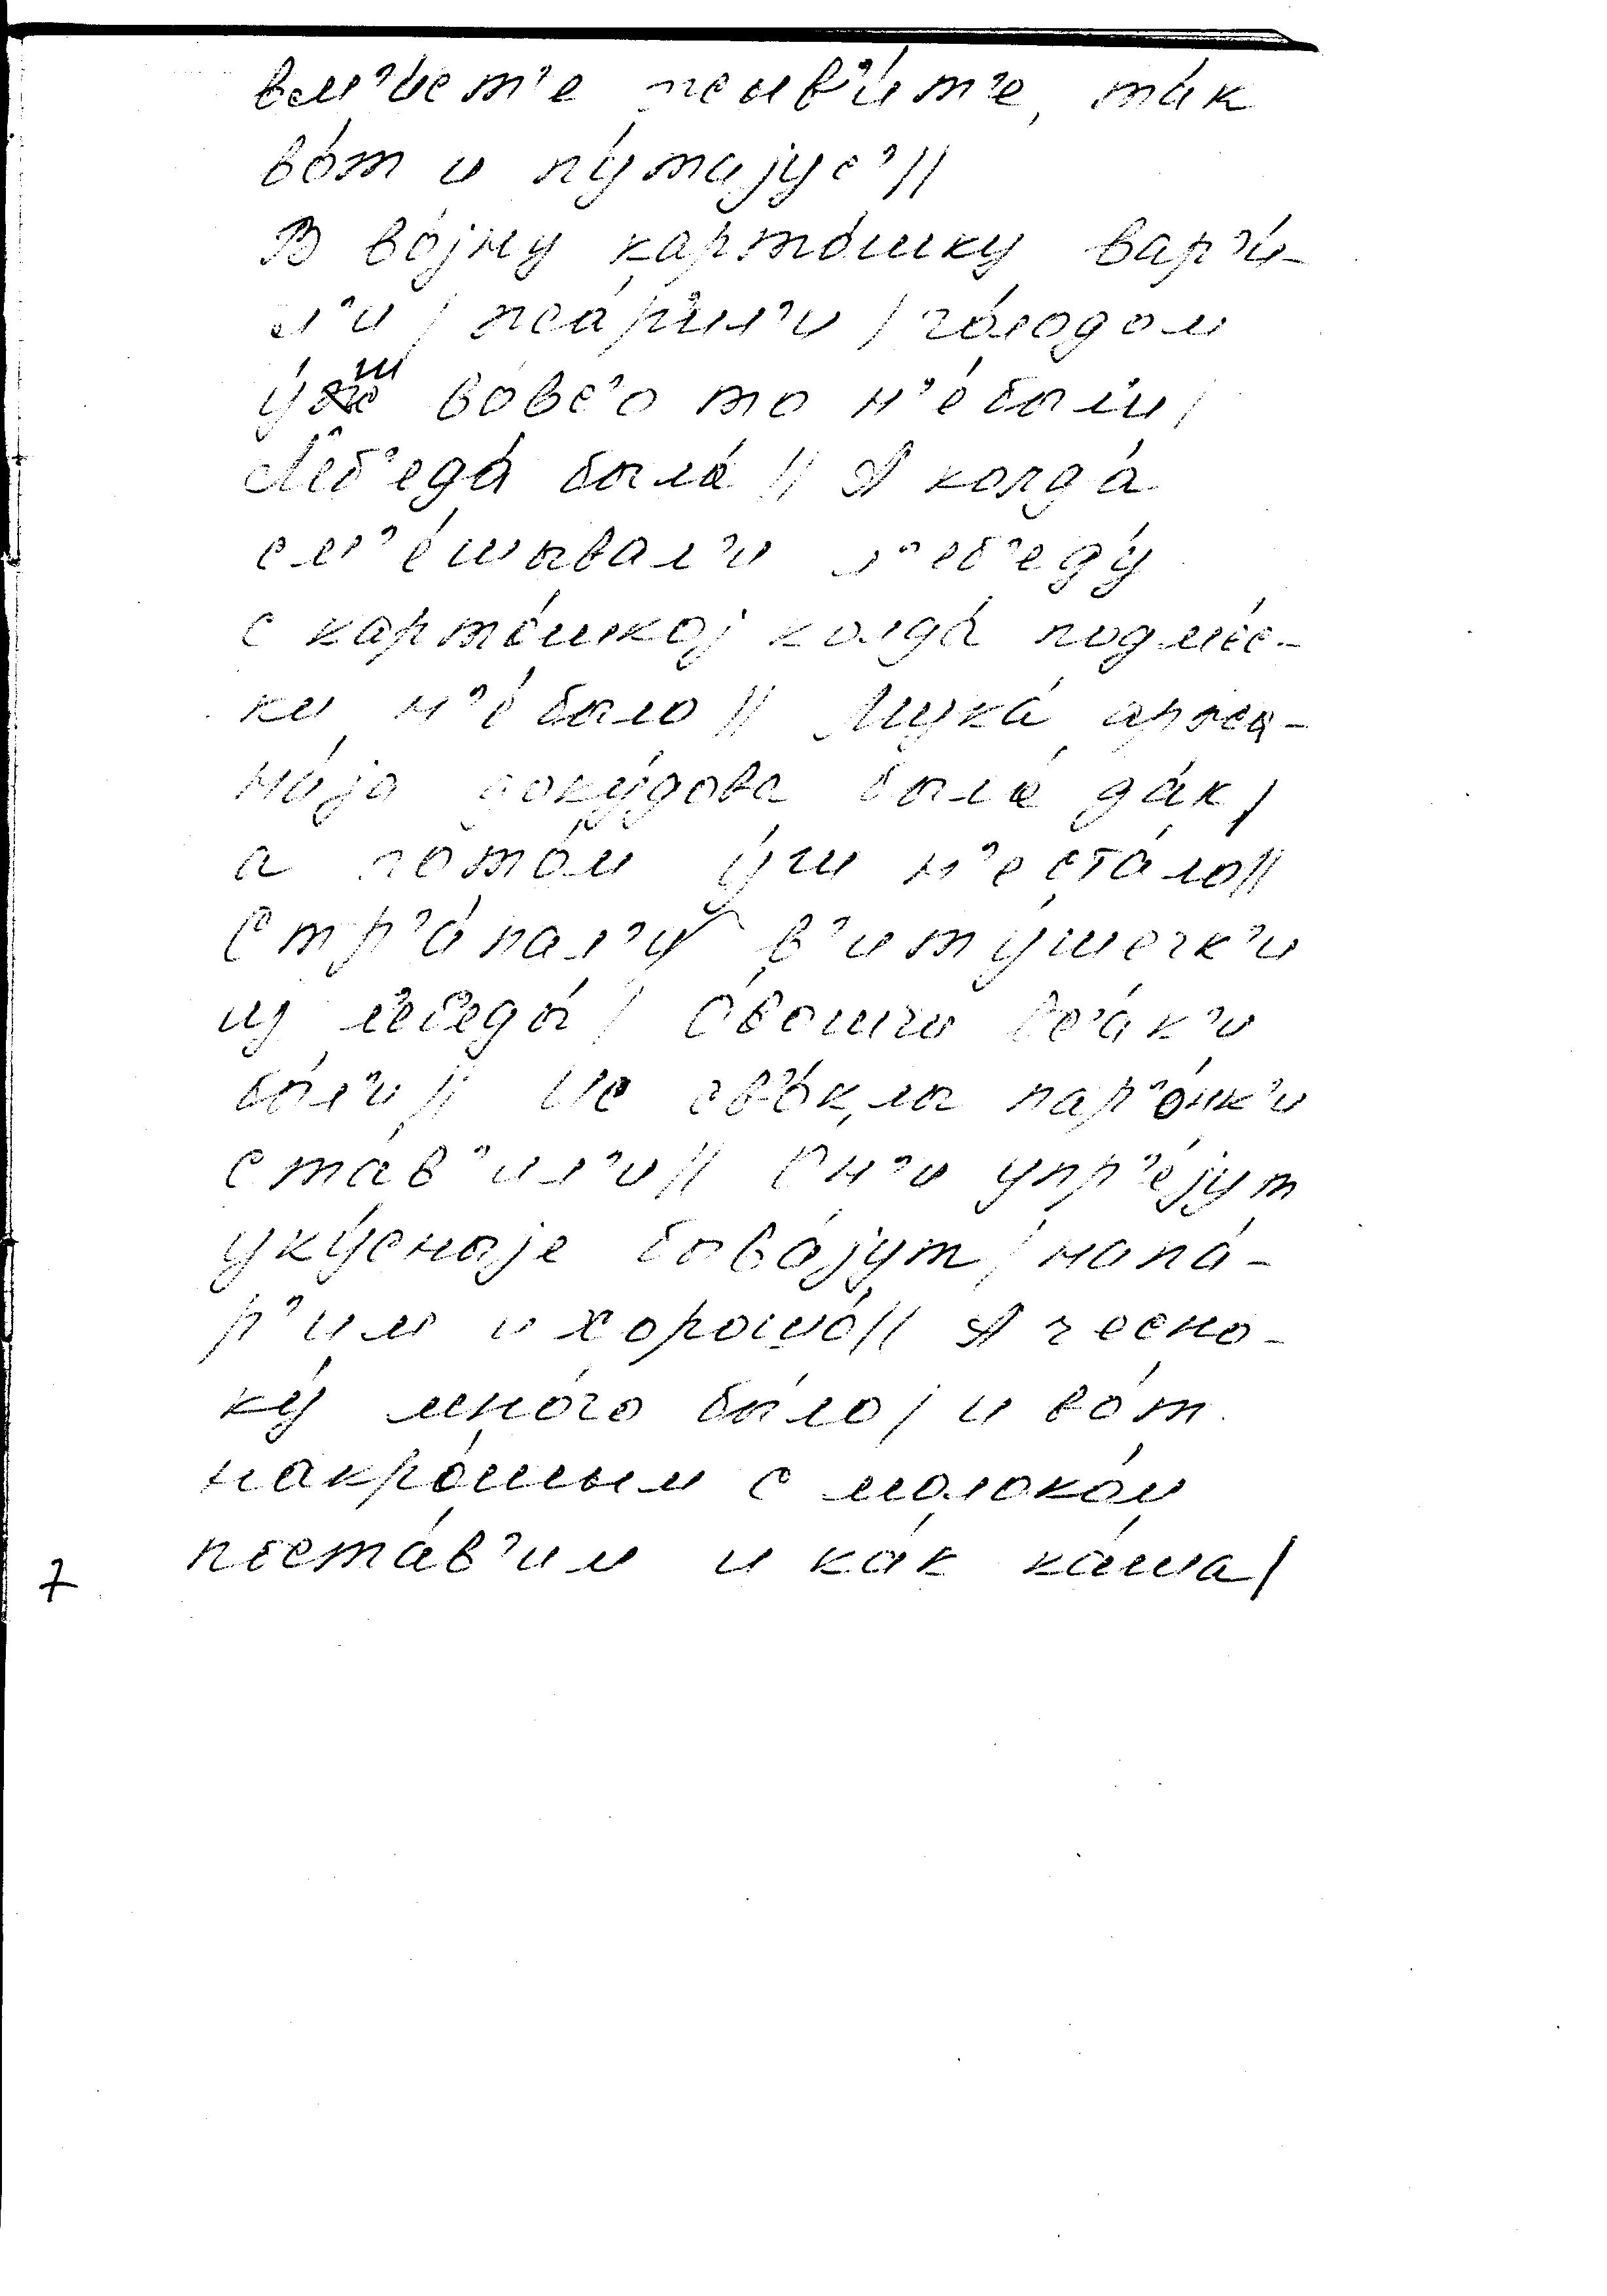 вм'и́ст'е жыв'и́т'е, та́к
во́т и пу́тајус'//
В во́јну карто́шку вар'и́-
л'и / жа́рил'и / го́лодом
у́ш во́вс'о то н'е́ были /
Л'еб'еда́ была́ // А колда́
см'е́шывал'и л'еб'еду́
с карто́шкој колда́ подмес-
ки н'е́было // Мука́ аржа-
на́ја доку́дова была́ да́к /
а пото́м у́ш н'е ста́ло //
Стр'а́пал'и в'иту́шечк'и
из лебеды́ / О́вошши вс'а́к'и
бы́л'и // Ис св'о́клы пар'о́нк'и
ста́в'ил'и // Он'и упр'е́јут
уку́снаје быва́јут / напа́-
р'им и хорошо́ // А чесно-
ку́ мно́го бы́ло / и во́т
накро́шым с молоко́м
поста́в'им и ка́к ка́ша /
7